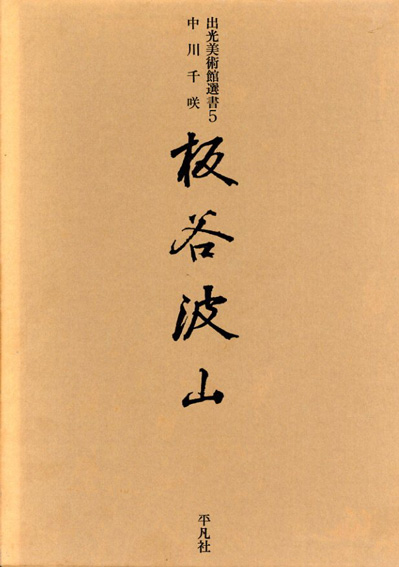 出光美術館選書5
中川千咲
板谷波山
平凡社